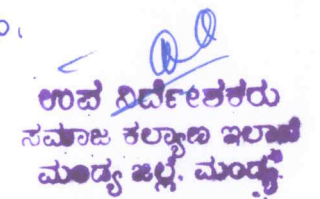 ಉಪ ನಿರ್ದೇಶಕರು
ಸಮಾಜ ಕಲ್ಯಾಣ ಇಲಾಖೆ
ಮಂಡ್ಯ ಜಿಲ್ಲೆ. ಮಂಡ್ಯ.